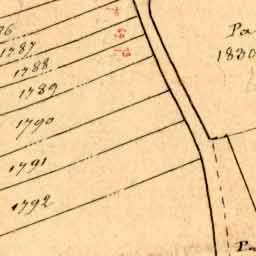 Pa
1830
1787
1788
1789
1790
1791
1792
Pa